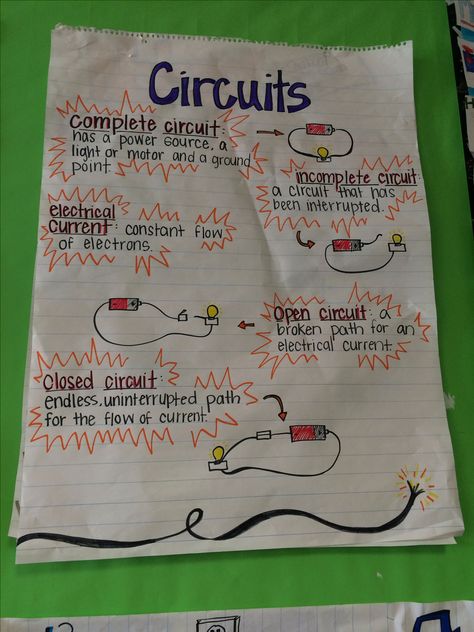 Circuits
Complete circuit:
has a power source, a
light or motor and a ground
point.
incomplete circuit:
a circuit that has
been interrupted.
electrical
current: constant flow
of electrons.
Open circuit: a
broken path for an
electrical current.
Closed circuit:
endless, uninterrupted path
for the flow of current.